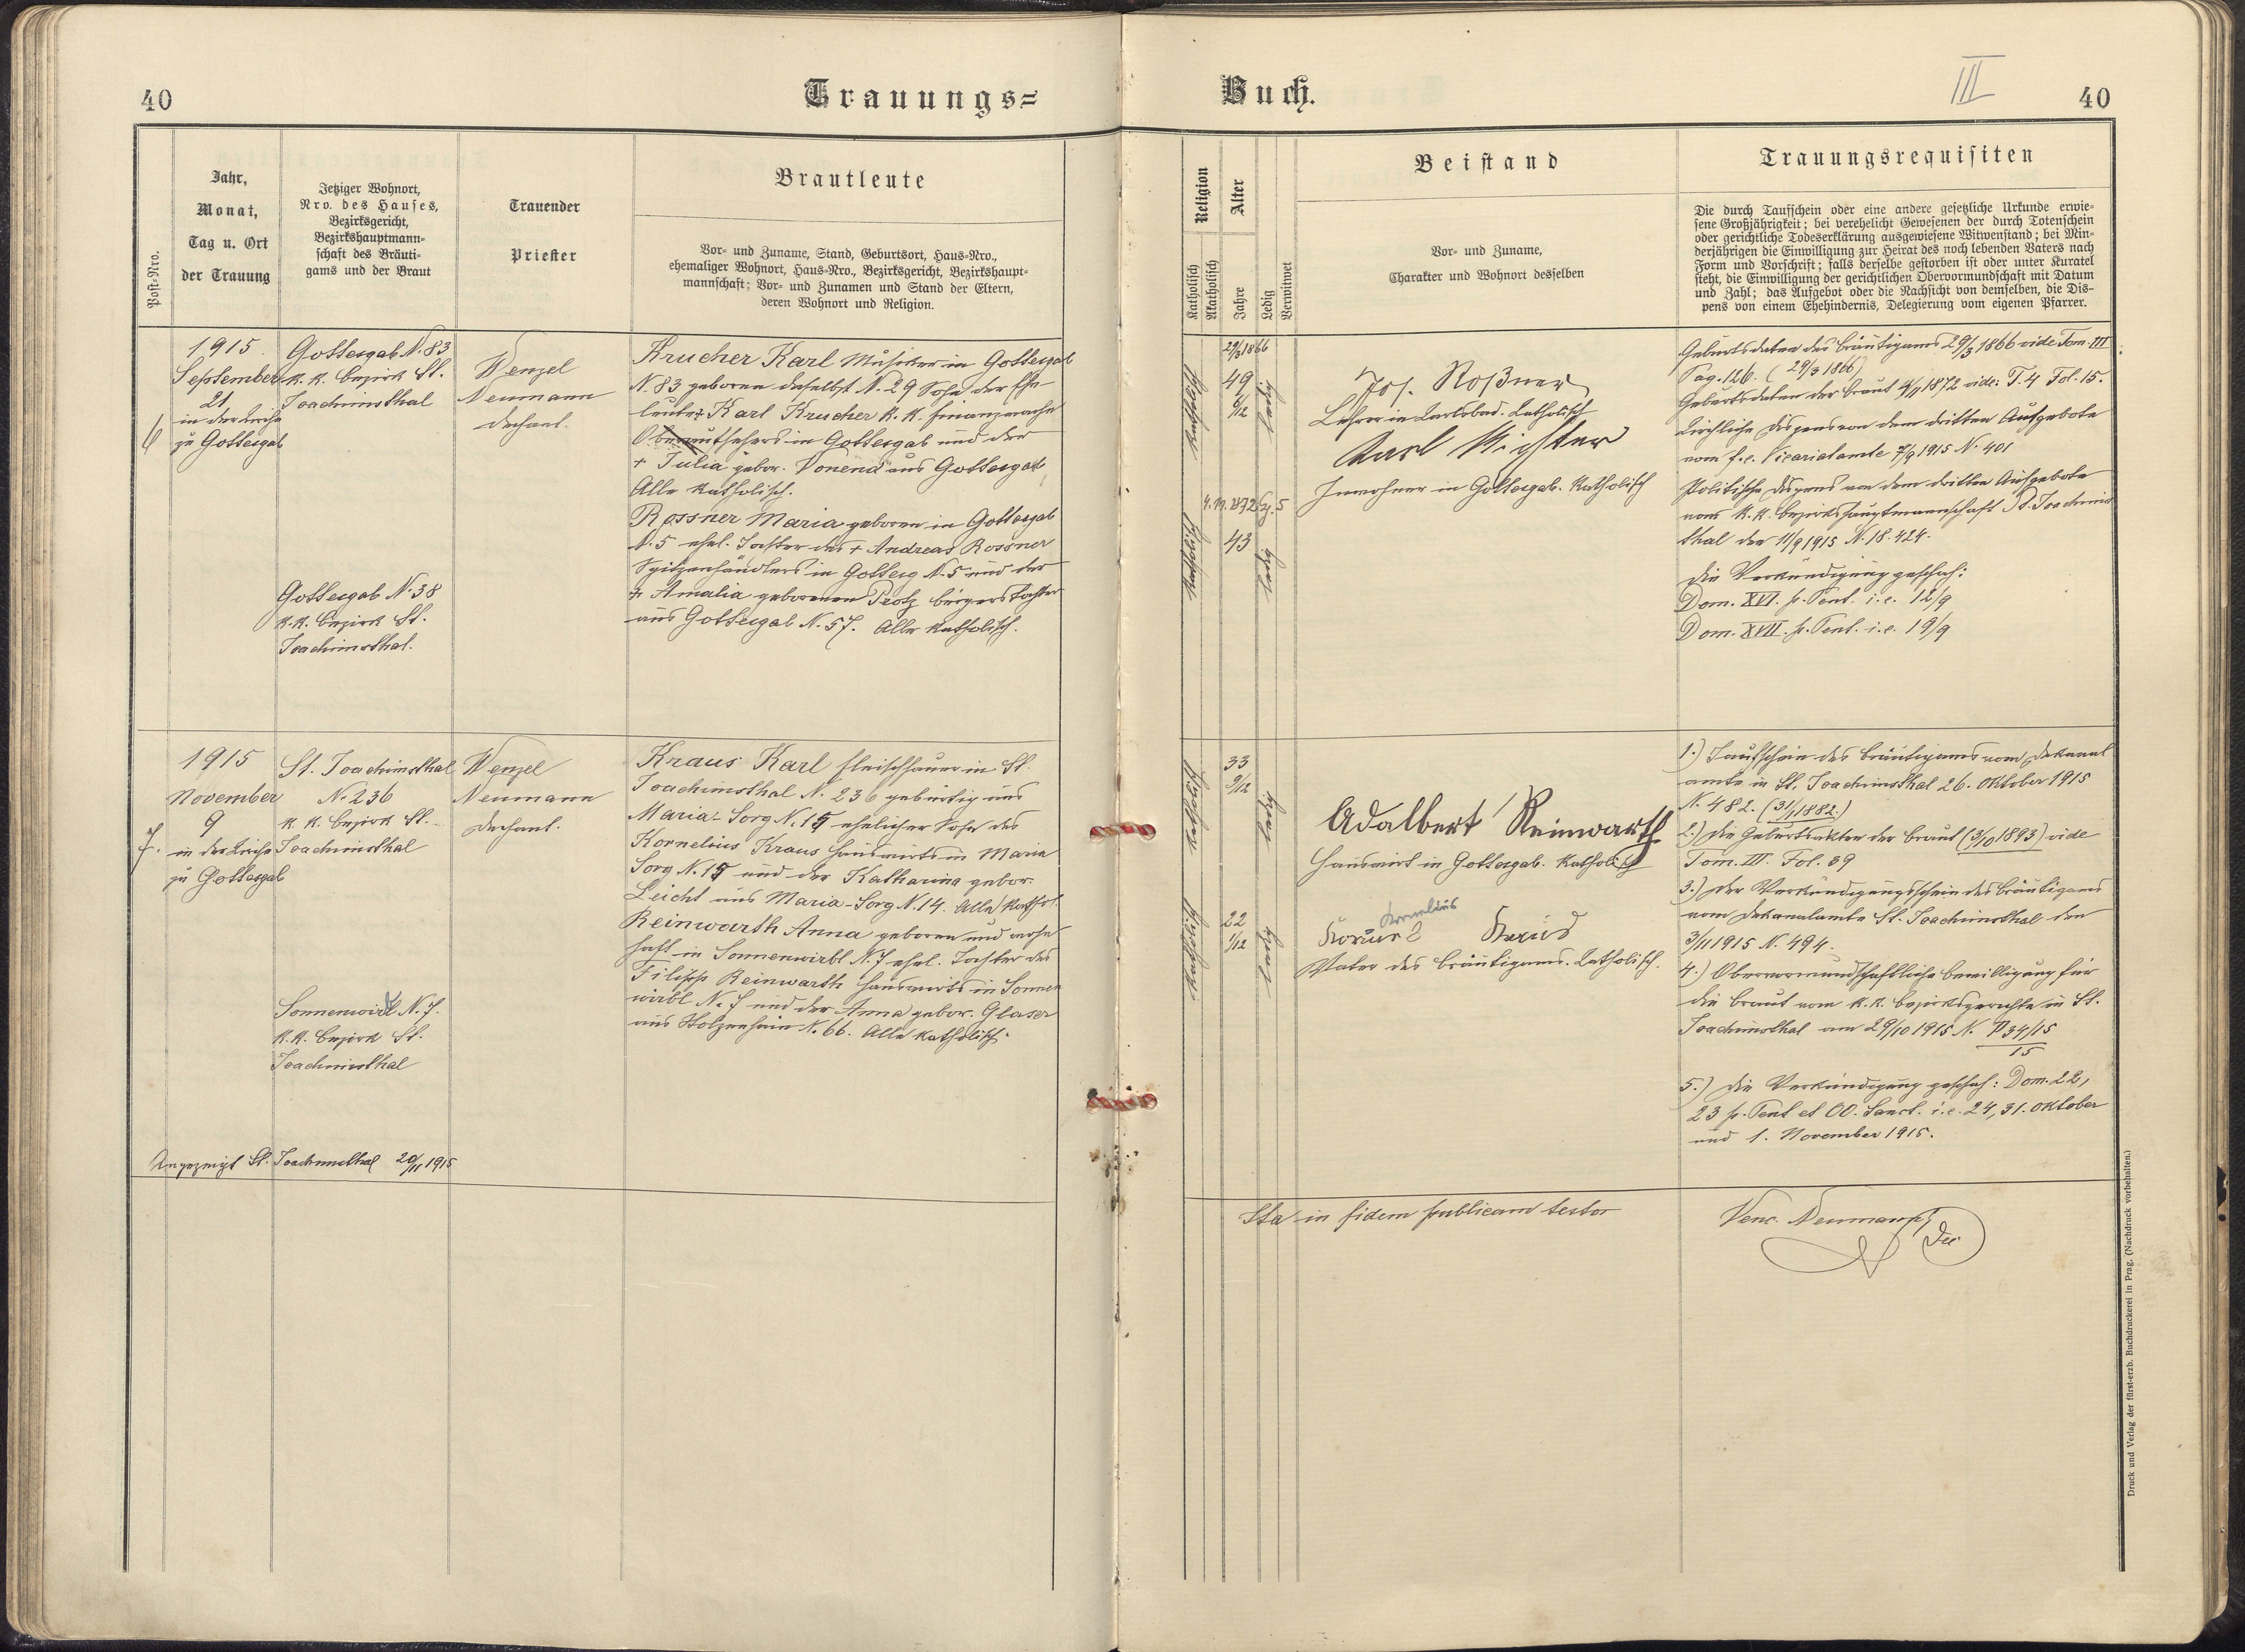 40
Trauungs=
Post-Nro.
Jahr,
Monat,
Tag u. Ort
der Trauung
Jetziger Wohnort,
Nro. des Hauses,
Bezirksgericht,
Bezirkshauptmann-
schaft des Bräuti-
gams und der Braut
Trauender
Priester
Brautleute
Vor- und Zuname, Stand, Geburtsort, Haus-Nro.,
ehemaliger Wohnort, Haus-Nro., Bezirksgericht, Bezirkshaupt-
mannschaft; Vor- und Zunamen und Stand der Eltern,
deren Wohnort und Religion.
6
1915
September
21
in der Kirche
zu Gottesgab
Gottesgab N. 83
k. k. Bezirk St.
Joachimsthal
Gottesgab N. 38
k. k. Bezirk St.
Joachimsthal.
Wenzel
Neumann
Dechant.
Krucher Karl Musiker in Gottesgab
N. 83 geboren daselbst N. 29 Sohn der Ehe
leute Karl Krucher k. k. Finanzwache
Oberaufsehers in Gottesgab und der
+ Julia gebor. Vonend aus Gottesgab
Alle katholisch.
Rossner Maria geboren in Gottesgab
N. 5 ehel. Tochter des + Andreas Rossner
Spitzenhändlers in Gottesg N. 5 und der
+ Amalia geborenen Protz bürgers Tochter
aus Gottesgab N. 57. Alle katholisch.
7.
1915
November
9
in der Kirche
zu Gottesgab
St. Joachimsthal
N. 236
k. k. Bezirk St.
Joachimsthal
Sonnenwirbl N. 7.
k. k. Bezirk St.
Joachimsthal
Wenzel
Neumann
Dechant.
Kraus Karl Fleischhauer in St.
Joachimsthal N. 236 gebürtig aus
Maria-Sorg N. 15 ehelicher Sohn des
Kornelius Kraus Hauswirts in Maria
Sorg N. 15 und der Katharina gebor.
Leicht aus Maria-Sorg N. 14. Alle kathol.
Reinwarth Anna geboren und wohn
haft in Sonnenwirbl N. 7 ehel. Tochter des
Filipp Reinwarth Hauswirts in Sonnen
wirbl N. 7 und der Anna gebor. Glaser
aus Holzenhain N. 66. Alle katholisch.
Angezeigt St. Joachimsthal 20/11 1915
Buch.
III
40
Religion
Katholisch
Akatholisch
Alter
Jahre
Ledig
Verwitwet
Beistand
Vor- und Zuname,
Charakter und Wohnort desselben
Trauungsrequisiten
Die durch Taufschein oder eine andere gesetzliche Urkunde erwie-
sene Großjährigkeit; bei verehelicht Gewesenen der durch Totenschein
oder gerichtliche Todeserklärung ausgewiesene Witwenstand; bei Min-
derjährigen die Einwilligung zur Heirat des noch lebenden Vaters nach
Form und Vorschrift; falls derselbe gestorben ist oder unter Kuratel
steht, die Einwilligung der gerichtlichen Obervormundschaft mit Datum
und Zahl; das Aufgebot oder die Nachsicht von demselben, die Dis-
pens von einem Ehehindernis, Delegierung vom eigenen Pfarrer.
29/3 1866
Katholisch
49
6/12
ledig
4. 11. 1872
Katholisch
43
ledig
Jos. Roßner
Lehrer in Karlsbad. Katholisch
Karl Richter
Inwohner in Gottesgab. Katholisch
Geburtsdaten des Bräutigams 29/3 1866 vide Tom. III
Pag. 126. (29/3 1866)
Geburtsdaten der Braut 4/11 1872 vide: T. 4 Fol. 15.
Kirchliche Dispens von dem dritten Aufgebote
vom f. e. Vicariatamte 7/9 1915 N. 401
Politische Dispens von dem dritten Aufgebote
von k. k. Bezirkshauptmannschaft St. Joachims
thal den 11/9 1915 N. 18.424.
Die Verkündigung geschah:
Dom. XVI. p. Pent. i. e. 12/9
Dom. XVII. p. Pent. i. e. 19/9
Katholisch
33
9/12
ledig
Katholisch
22
1/12
ledig
Adalbert Reinwarth
Hauswirt in Gottesgab. Katholisch
Kornelius
Kraus
Vater des Bräutigams. Katholisch.
1.) Taufschein des Bräutigams vom Dekanal
amte in St. Joachimsthal 26. Oktober 1915
N. 482. (31/1 1882.)
2.) Die Geburtsakten der Braut (3/10 1893) vide
Tom. III. Fol. 39
3.) Der Verkündigungsschein des Bräutigams
vom Dekanalamte St. Joachimsthal den
3/11 1915 N. 494.
4.) Obervormundschaftliche Bewilligung für
die Braut vom k. k. Bezirksgerichte in St.
Joachimsthal am 29/10 1915 N. P 34/15
15
5.) Die Verkündigung geschah: Dom. 22,
23 p. Pent et OO. Sanct. i. e. 24, 31. Oktober
und 1. November 1915.
Ita in fidem publicam testor
Venc. Neumann
Dec
Druck und Verlag der fürst-erzb. Buchdruckerei in Prag. (Nachdruck vorbehalten.)